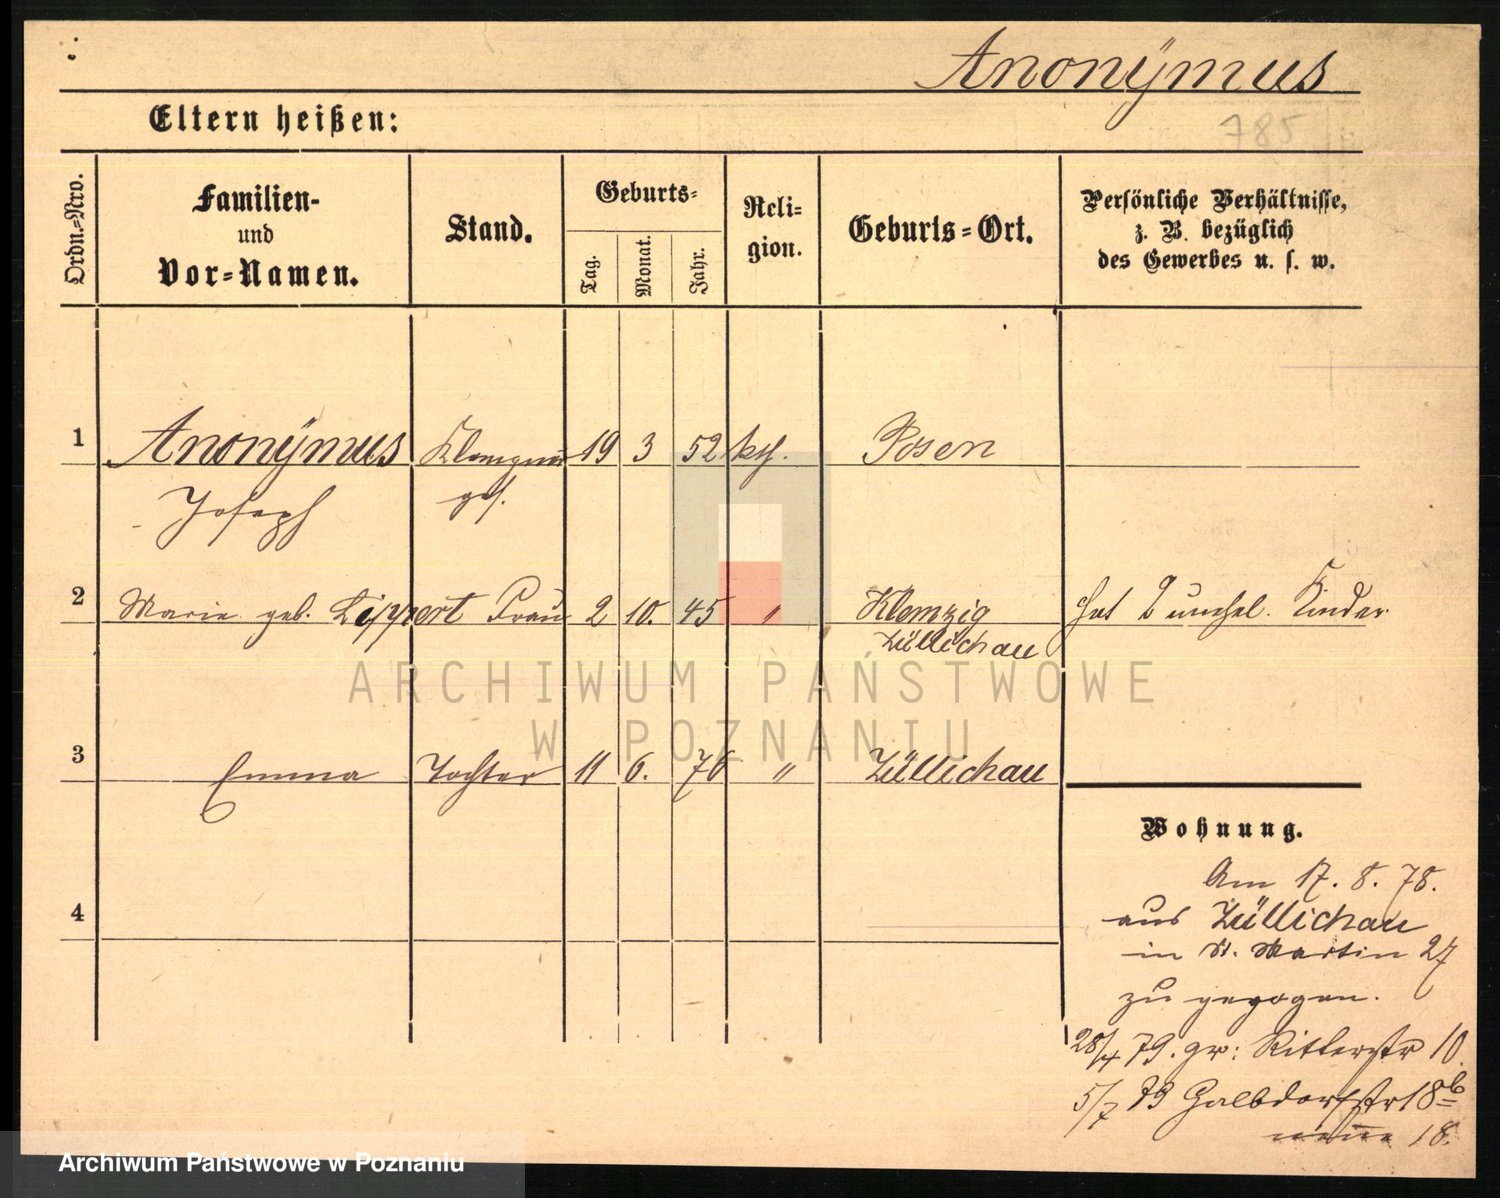 Anonÿmus
785
Eltern heißen:
Ordn.=Nro.
Familien-
und
Vor=Namen.
Stand.
Geburts=
Tag.
Monat.
Jahr.
Reli=
gion.
Geburts=Ort.
Persönliche Verhältnisse,
z. B. bezüglich
des Gewerbes u. s. w.
1 Anonÿmus Klempner 19 3 52 kth. Posen
Joseph
2 Marie geb. Lippert Frau 2 10. 45 " Klemzig Hat 2 unehel. Kinder
Züllichau
ARCHIWUM PAŃSTWOWE
W POZNANIU
3 Emma Tochter 11 6. 76 " Züllichau
Wohnung.
Am 17. 8. 78.
aus Züllichau
in St. Martin 27
zu gezogen.
4
28/4 79. gr: Ritterstr 10.
5/7 79 Halbdorfstr 18b
neue 18.
Archiwum Państwowe w Poznaniu